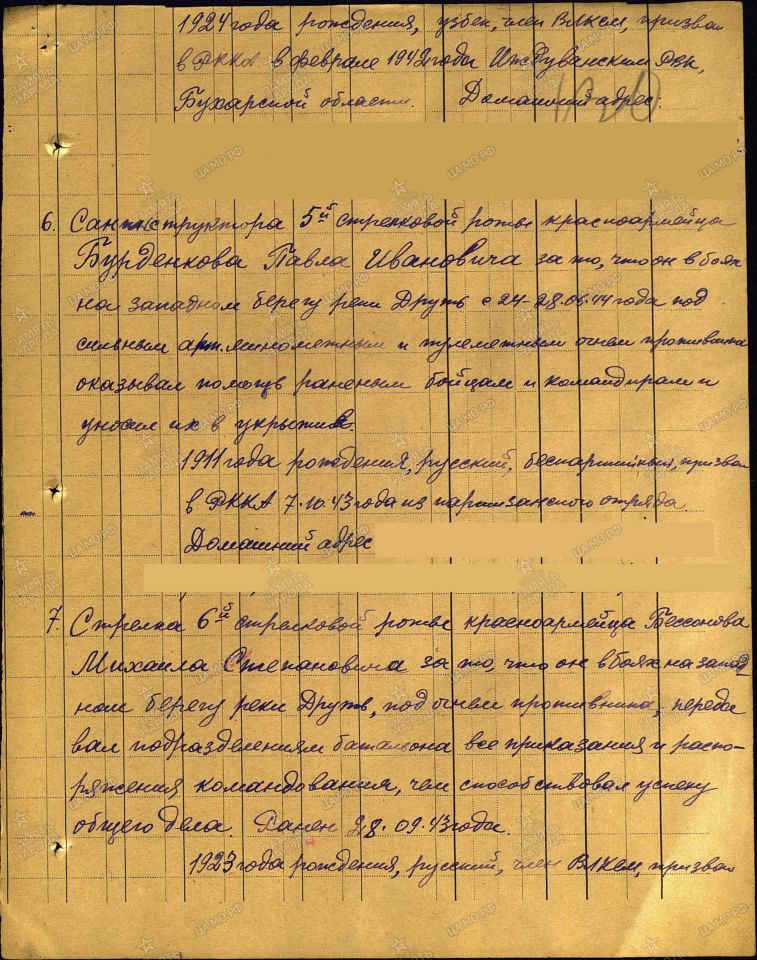 1924 года рождения, узбек, член ВЛКСМ, призван
в РККА в феврале 1942 года Гиждуванским РВК,
Бухарской области. Домашний адрес:
6. Санинструктора 5й стрелковой роты красноармейца
Бурденкова Павла Ивановича за то, что он в боях
на западном берегу реки Друть с 24-28.06.44 года под
сильным арт. минометным и пулеметным огнем противника
оказывал помощь раненым бойцам и командирам и
уносил их в укрытие.
1911 года рождения, русский, беспартийный, призван
в РККА 7.10.43 года из партизанского отряда.
Домашний адрес
7. Стрелка 6й стрелковой роты красноармейца Бессонова
Михаила Степановича за то, что он в боях на запад
ном берегу реки Друть, под огнем противника, переда
вал подразделениям батальона все приказания и распо-
ряжения командования, чем способствовал успеху
общего дела. Ранен 28.09.43 года.
1923 года рождения, русский, член ВЛКСМ, призван